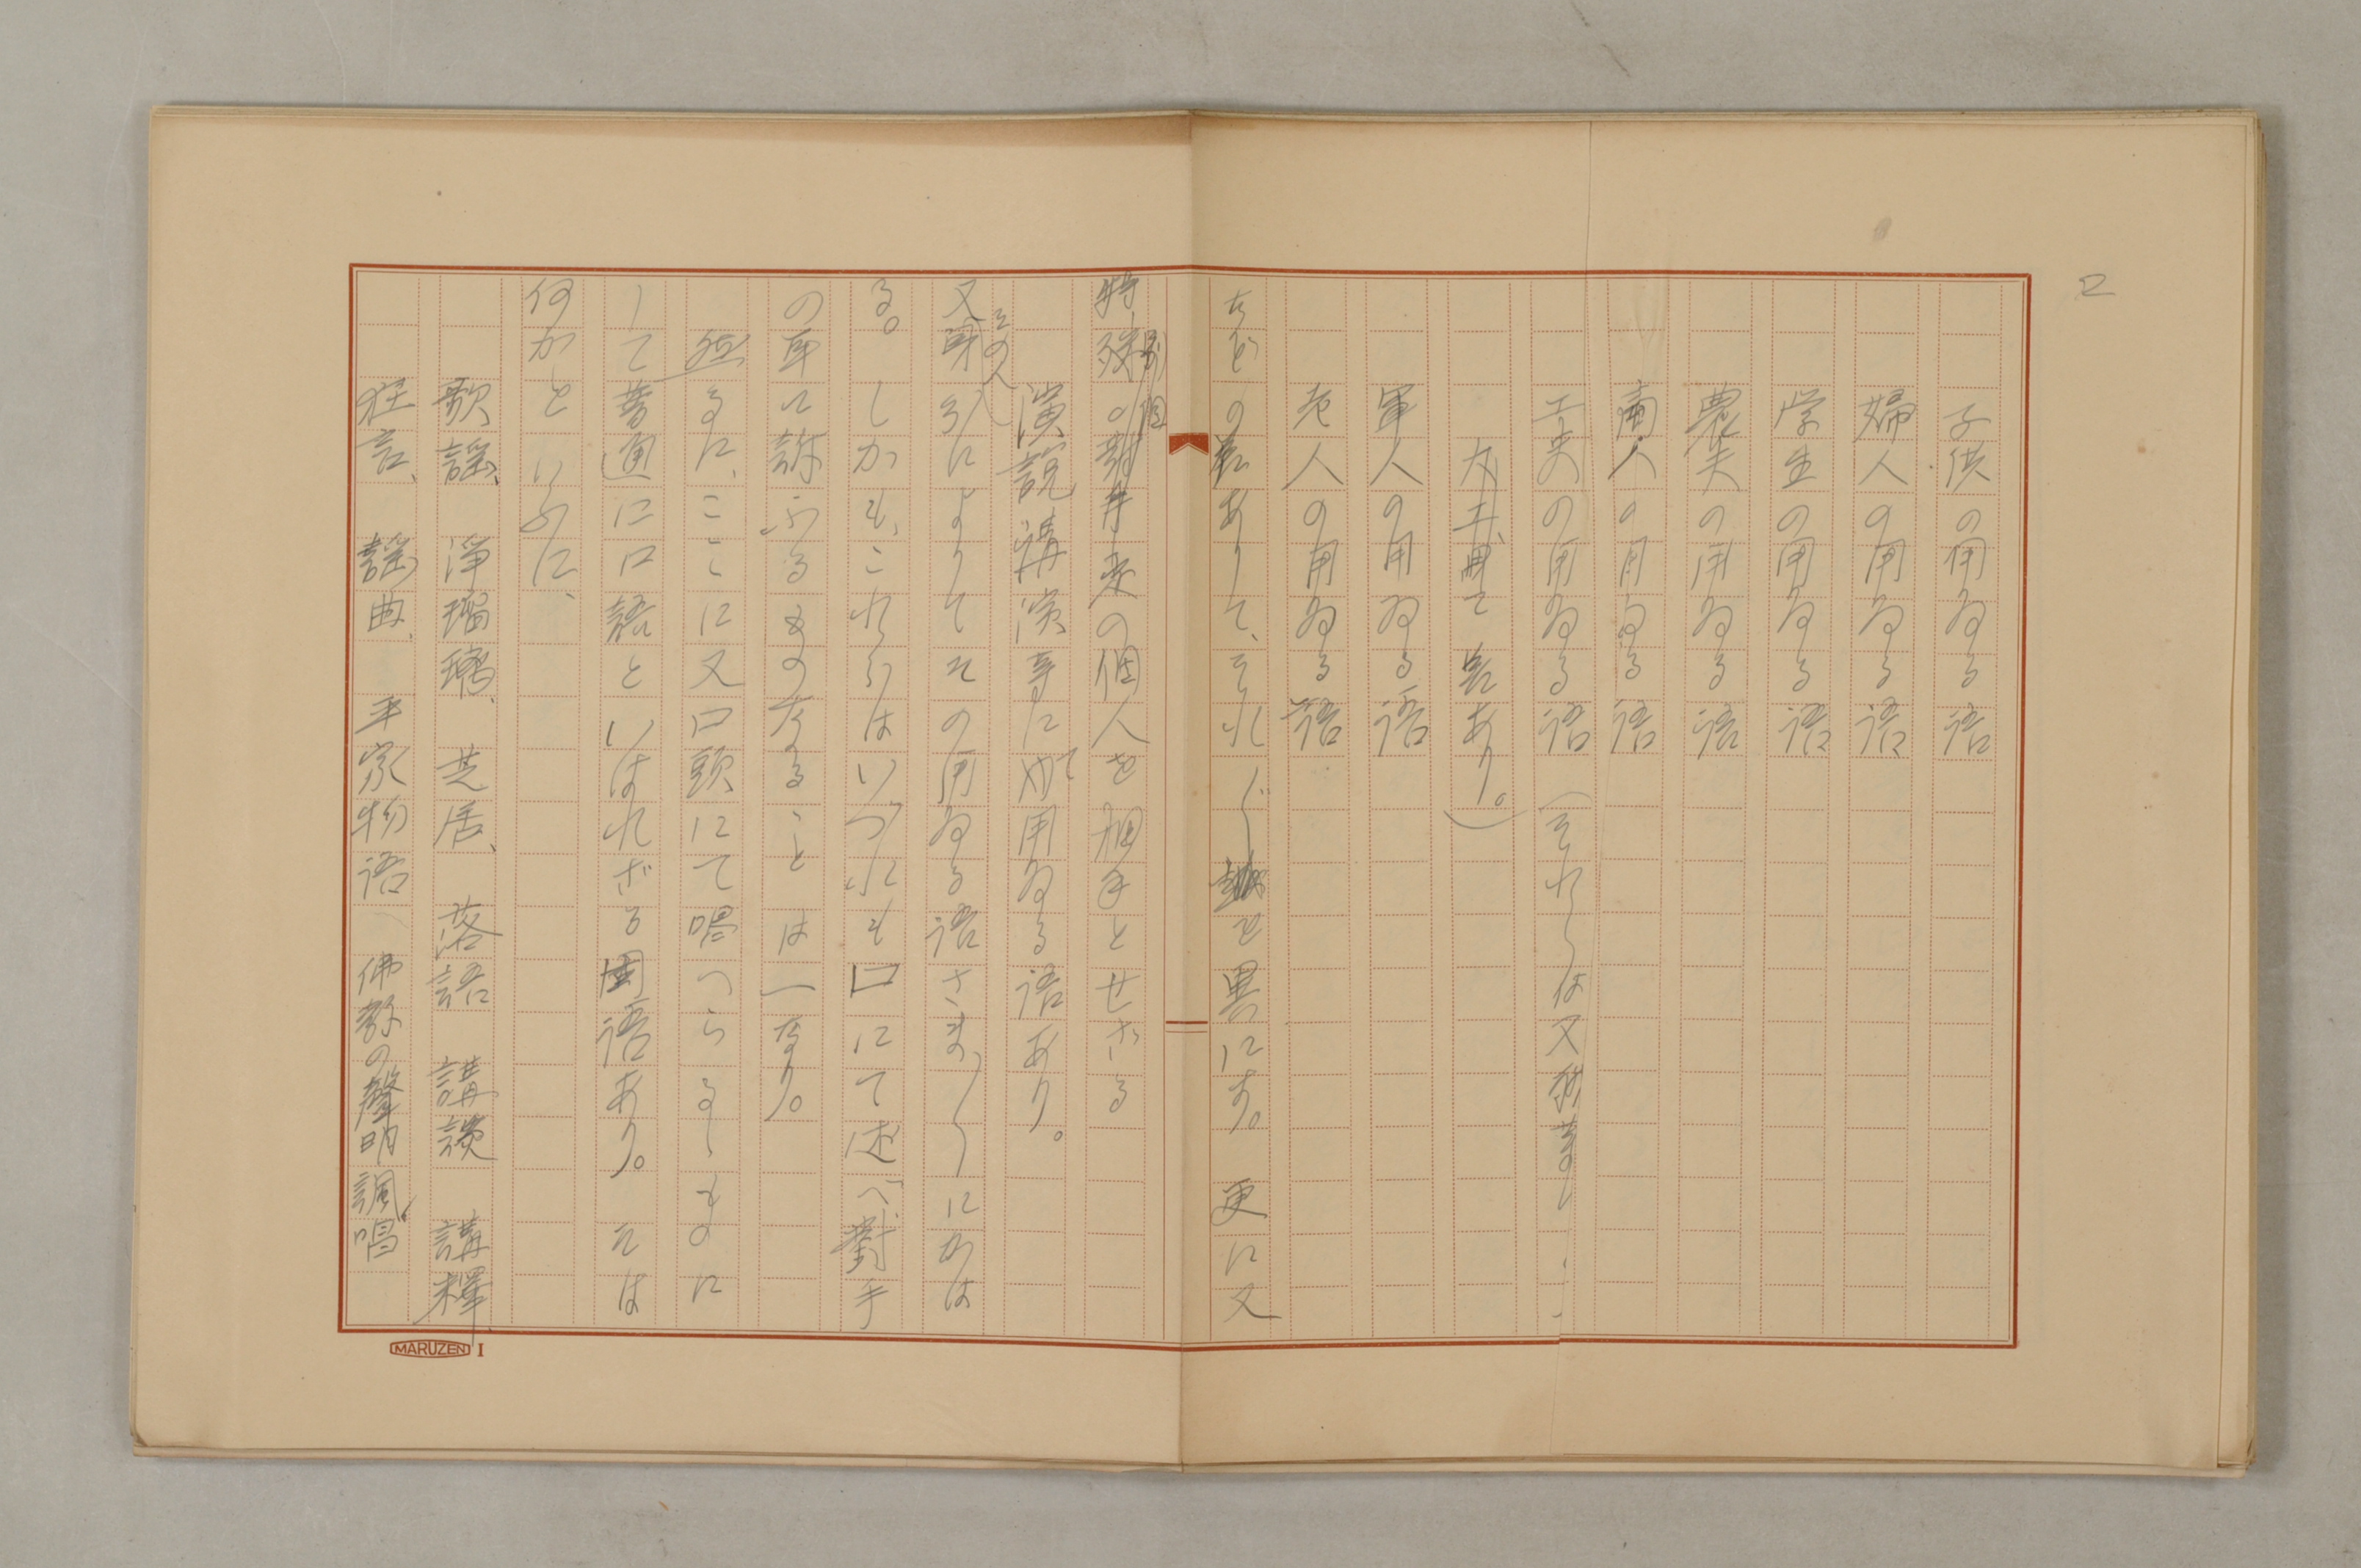 2
子供の用ゐる語
婦人の用ゐる語
学生の用ゐる語
農夫の用ゐる語
商人の用ゐる語
工夫の用ゐる語(それ〱は又
差あり。)
軍人の用ゐる語
老人の用ゐる語
などの差ありて、それ〲を異にす。 更に又
特殊の の個人を相手とせざる
演説講演等にて用ゐる語あり。
又 その人 によりてその用ゐる語さま〱にかは
る。 しかも、これらはいづれも口にて述べ、對手
の耳に訴ふるものなることは一なり。
然るに、ここに又口頭にて唱へらるゝものに
して普通に口語といはれざる国語あり。 そは
何かといふに、
歌謡、 浄瑠璃、 芝居、 落語 講談 講釋、
狂言、 謡曲、 平家物語 佛教の聲明 諷唱
MARUZEN I